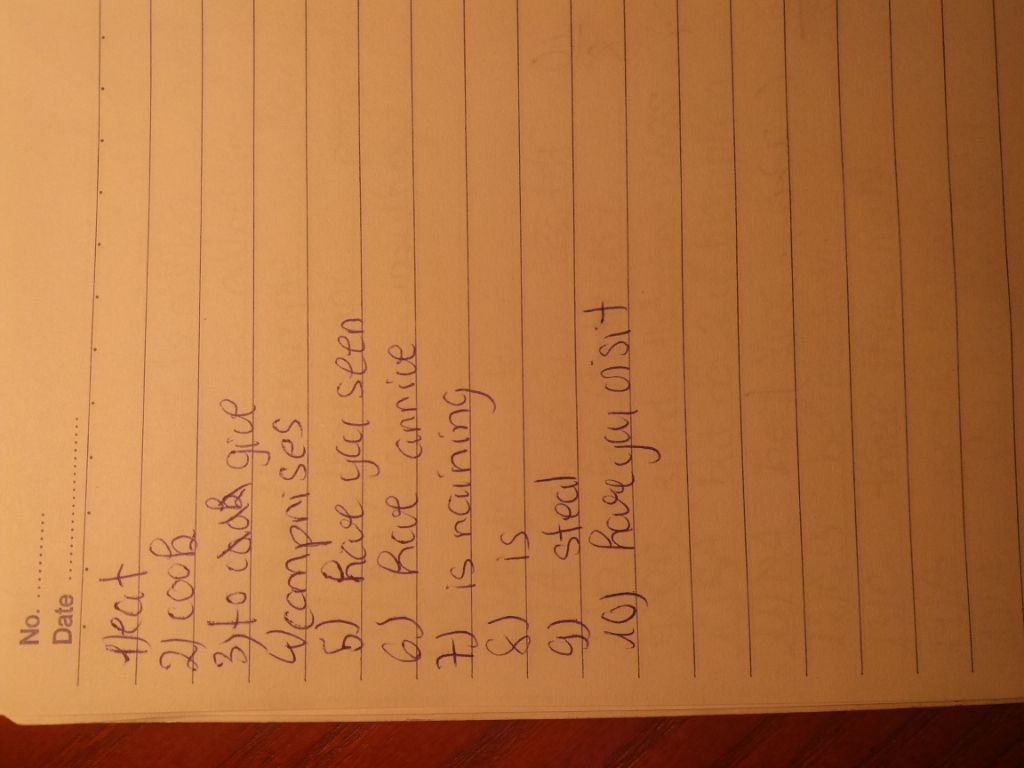 No. ..........
Date ....................
1) eat
2) cook
3) to give
4) comprises
5) have you seen
6) have arrive
7) is raining
8) is
9) steal
10) have you visit